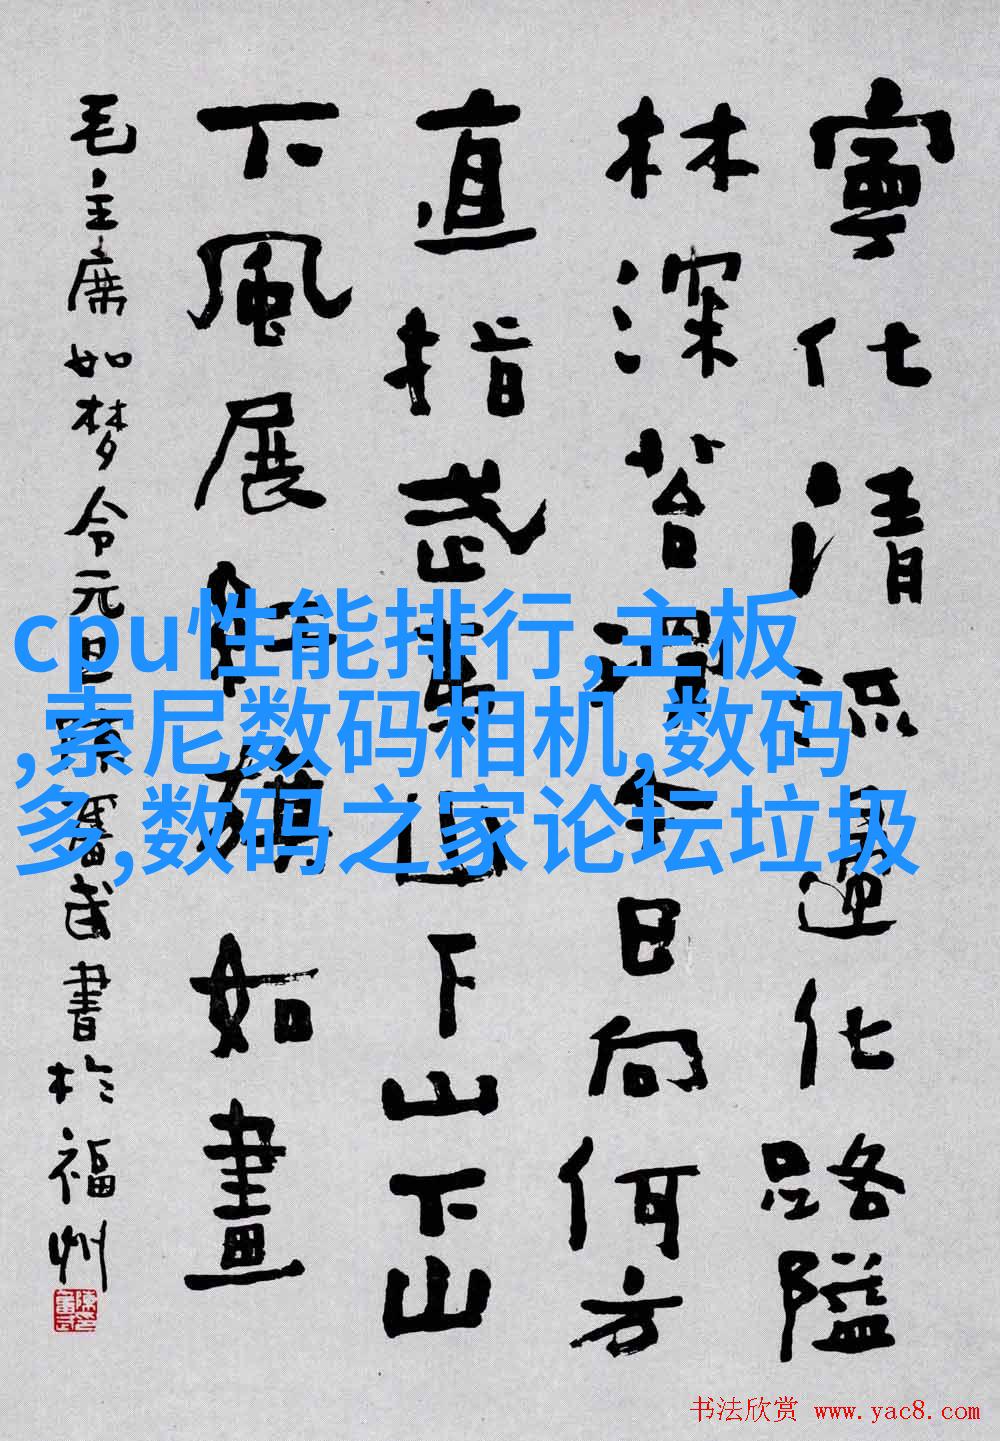 寧化清流歸化路隘
林深苔滑今日向何方
直指武夷山下山下山
下風展紅旗如畫
毛主席如梦令元旦 潘武書於福州
cpu性能排行,主板
,索尼数码相机,数码
多,数码之家论坛垃圾
书法欣赏 www.yac8.com